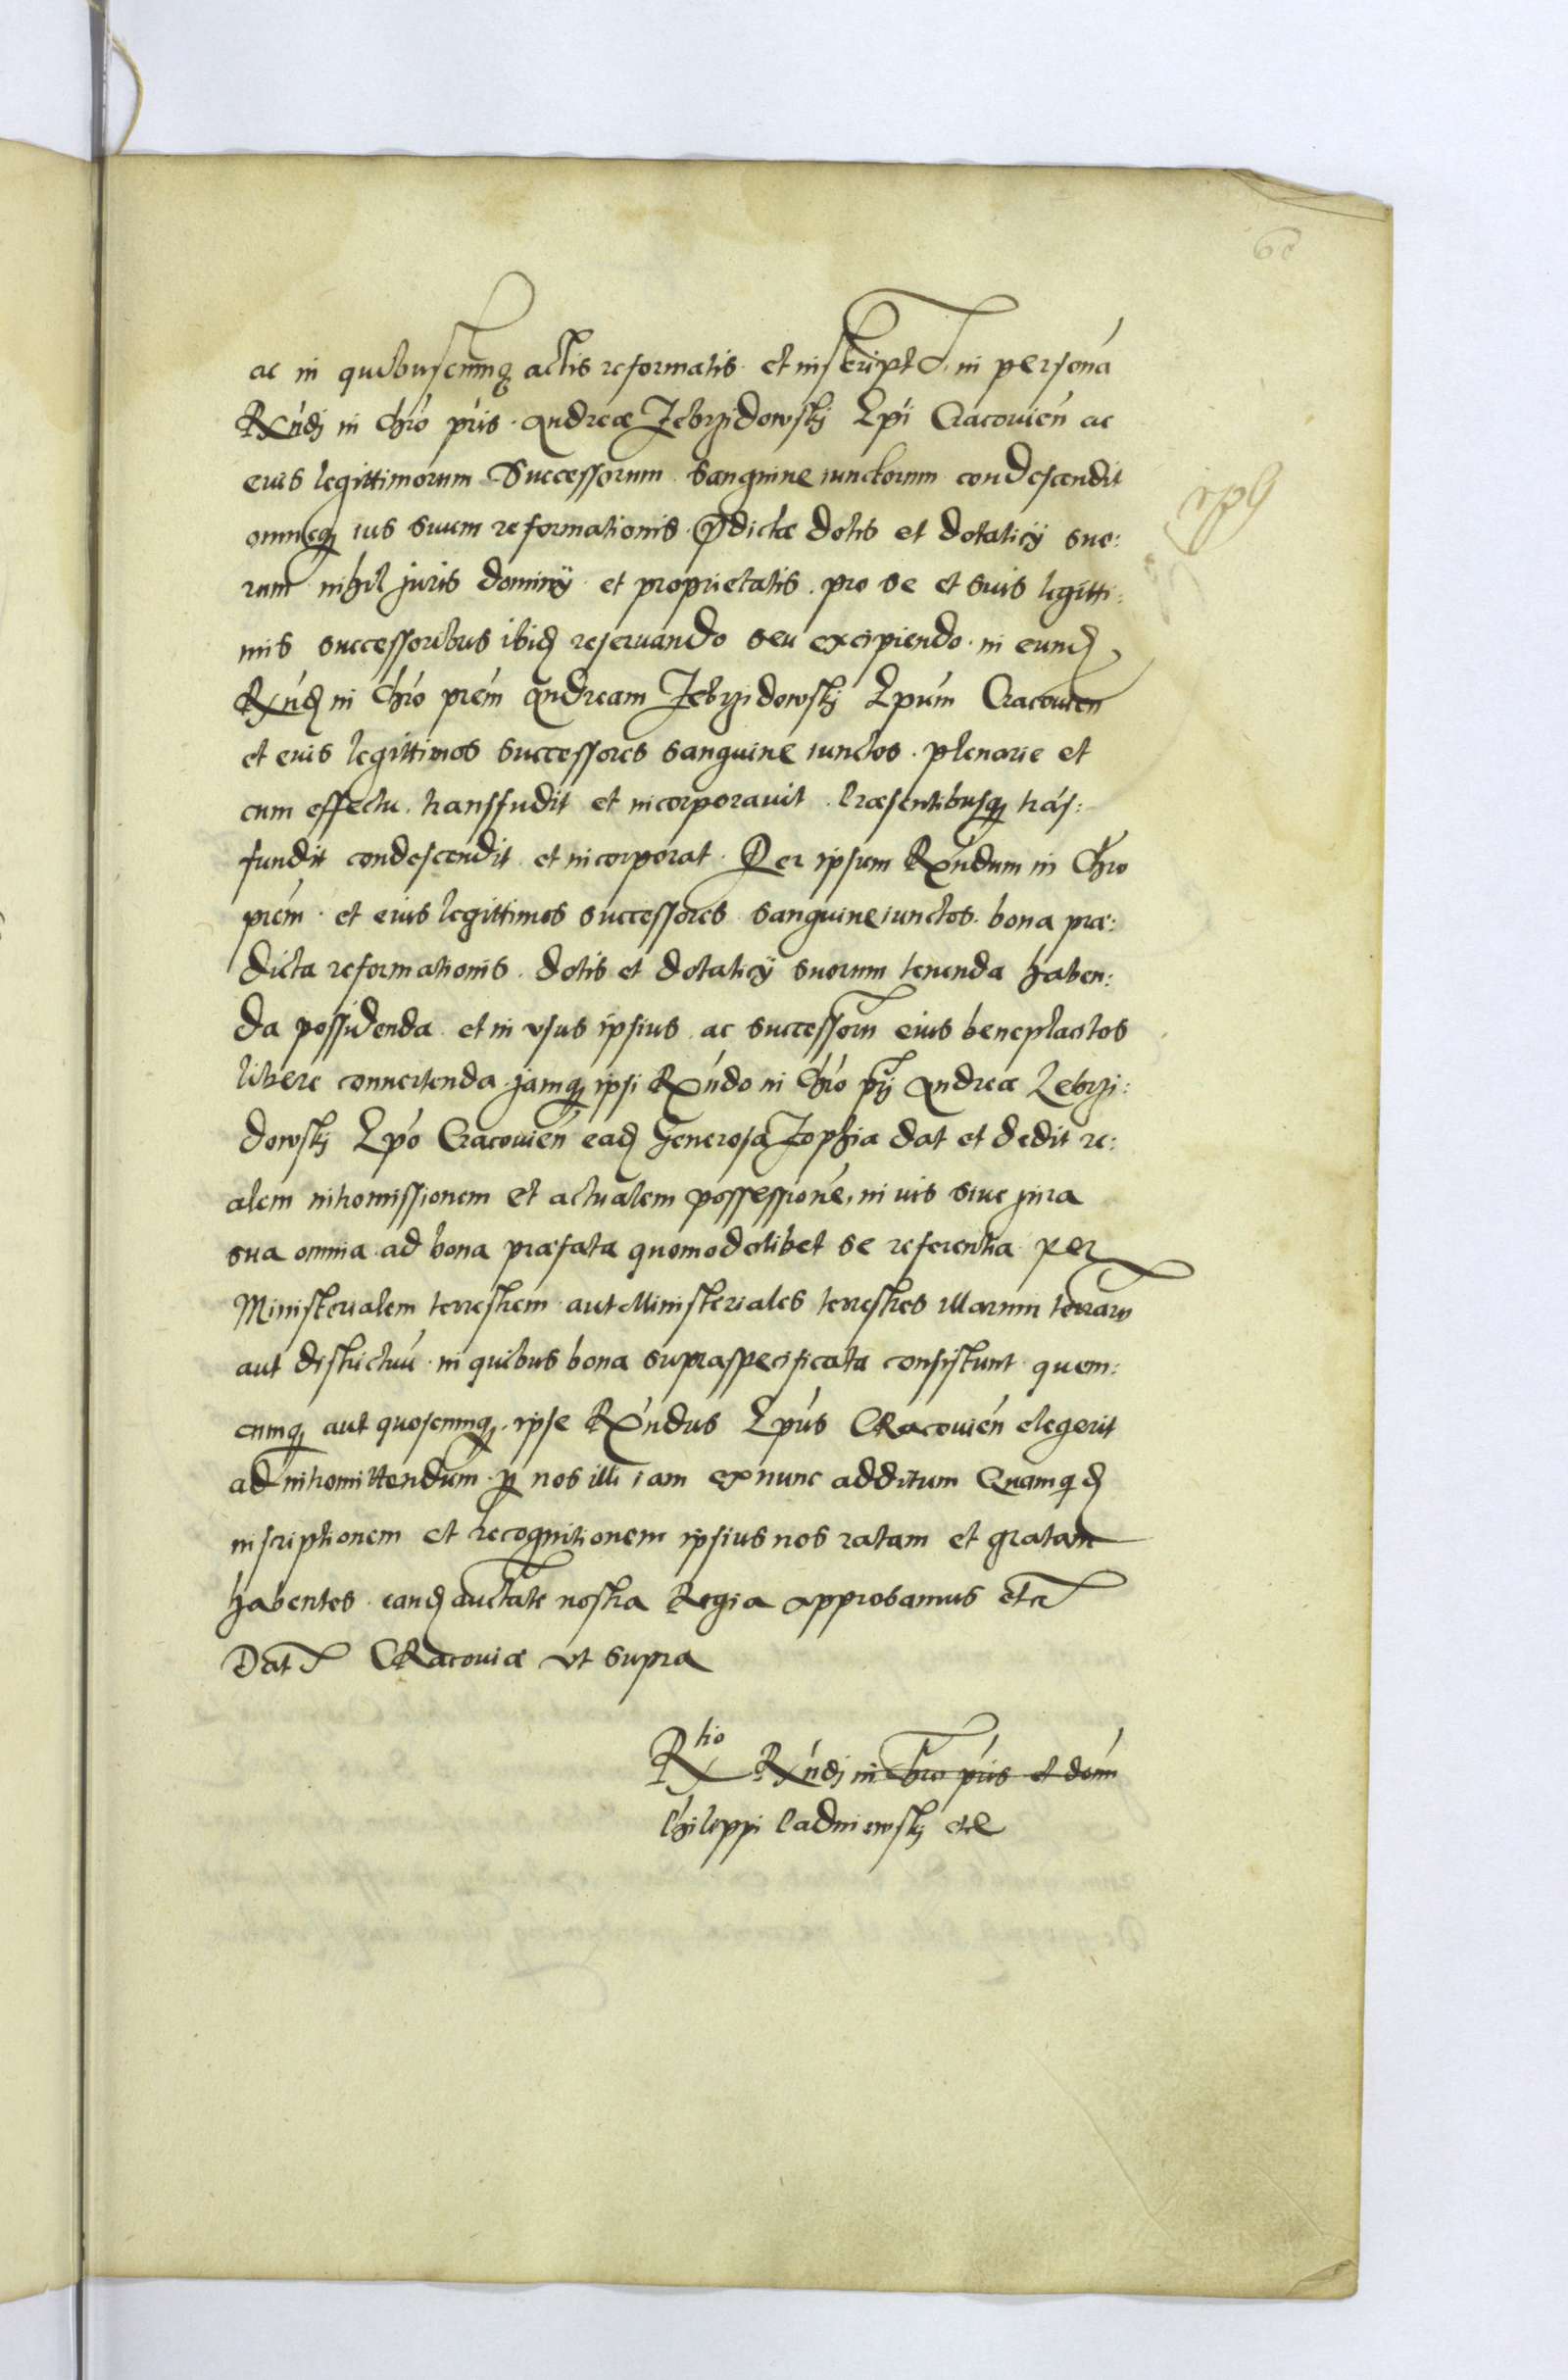 ac in quibuscunq actis reformatis et inscript in persona
Rxndi in Chro pris Andreæ Zebrzidowskj Epi Cracovien ac
eius legittimorum Successorum sanguine iunctorum condescendit
omneq ius suum reformationis pdictæ dotis et dotalicij suo:
rum nihil juris dominij et proprietatis pro se et suis legitti:
mis successoribus ibid reseruando seu excipiendo in eund
Rxnd in Chro prem Andream Zebrzidowskj Epum Cracouien
et eius legittimos successores sanguine iunctos plenarie et
cum effectu transfudit et incorporauit Præsentibusq trás:
fundit condescendit et incorporat Per ipsum Rxndum in Chro
prem et eius legittimos successores sanguine iunctos bona præ:
dicta reformationis dotis et dotalicij suorum tenenda haben:
da possidenda et in usus ipsius ac successorm eius beneplacitos
libere conuertenda jamq ipsi Rxndo in Chro pri Andreæ Zebrzi:
dowskj Epo Cracouien ead Generosa Zophia dat et dedit re:
alem intromissionem et actualem possessione, in uis siue jura
sua omnia ad bona præfata quomodolibet se referentia per
Ministerialem terrestrem aut Ministeriales terrestres illarum terrarm
aut districtuu in quibus bona supraspecificata consistunt quem:
cunq aut quoscunq ipse Rxndus Epus Cracouien elegerit
ad intromittendum p nos illi iam ex nunc additum Quamqd
inscriptionem et recognitionem ipsius nos ratam et gratam
habentes eand auctate nostra Regia approbamus etc
Dat Cracouiæ ut supra
Rtio Rxndi in Chro pris et domi
Philippi Padniewskj etc